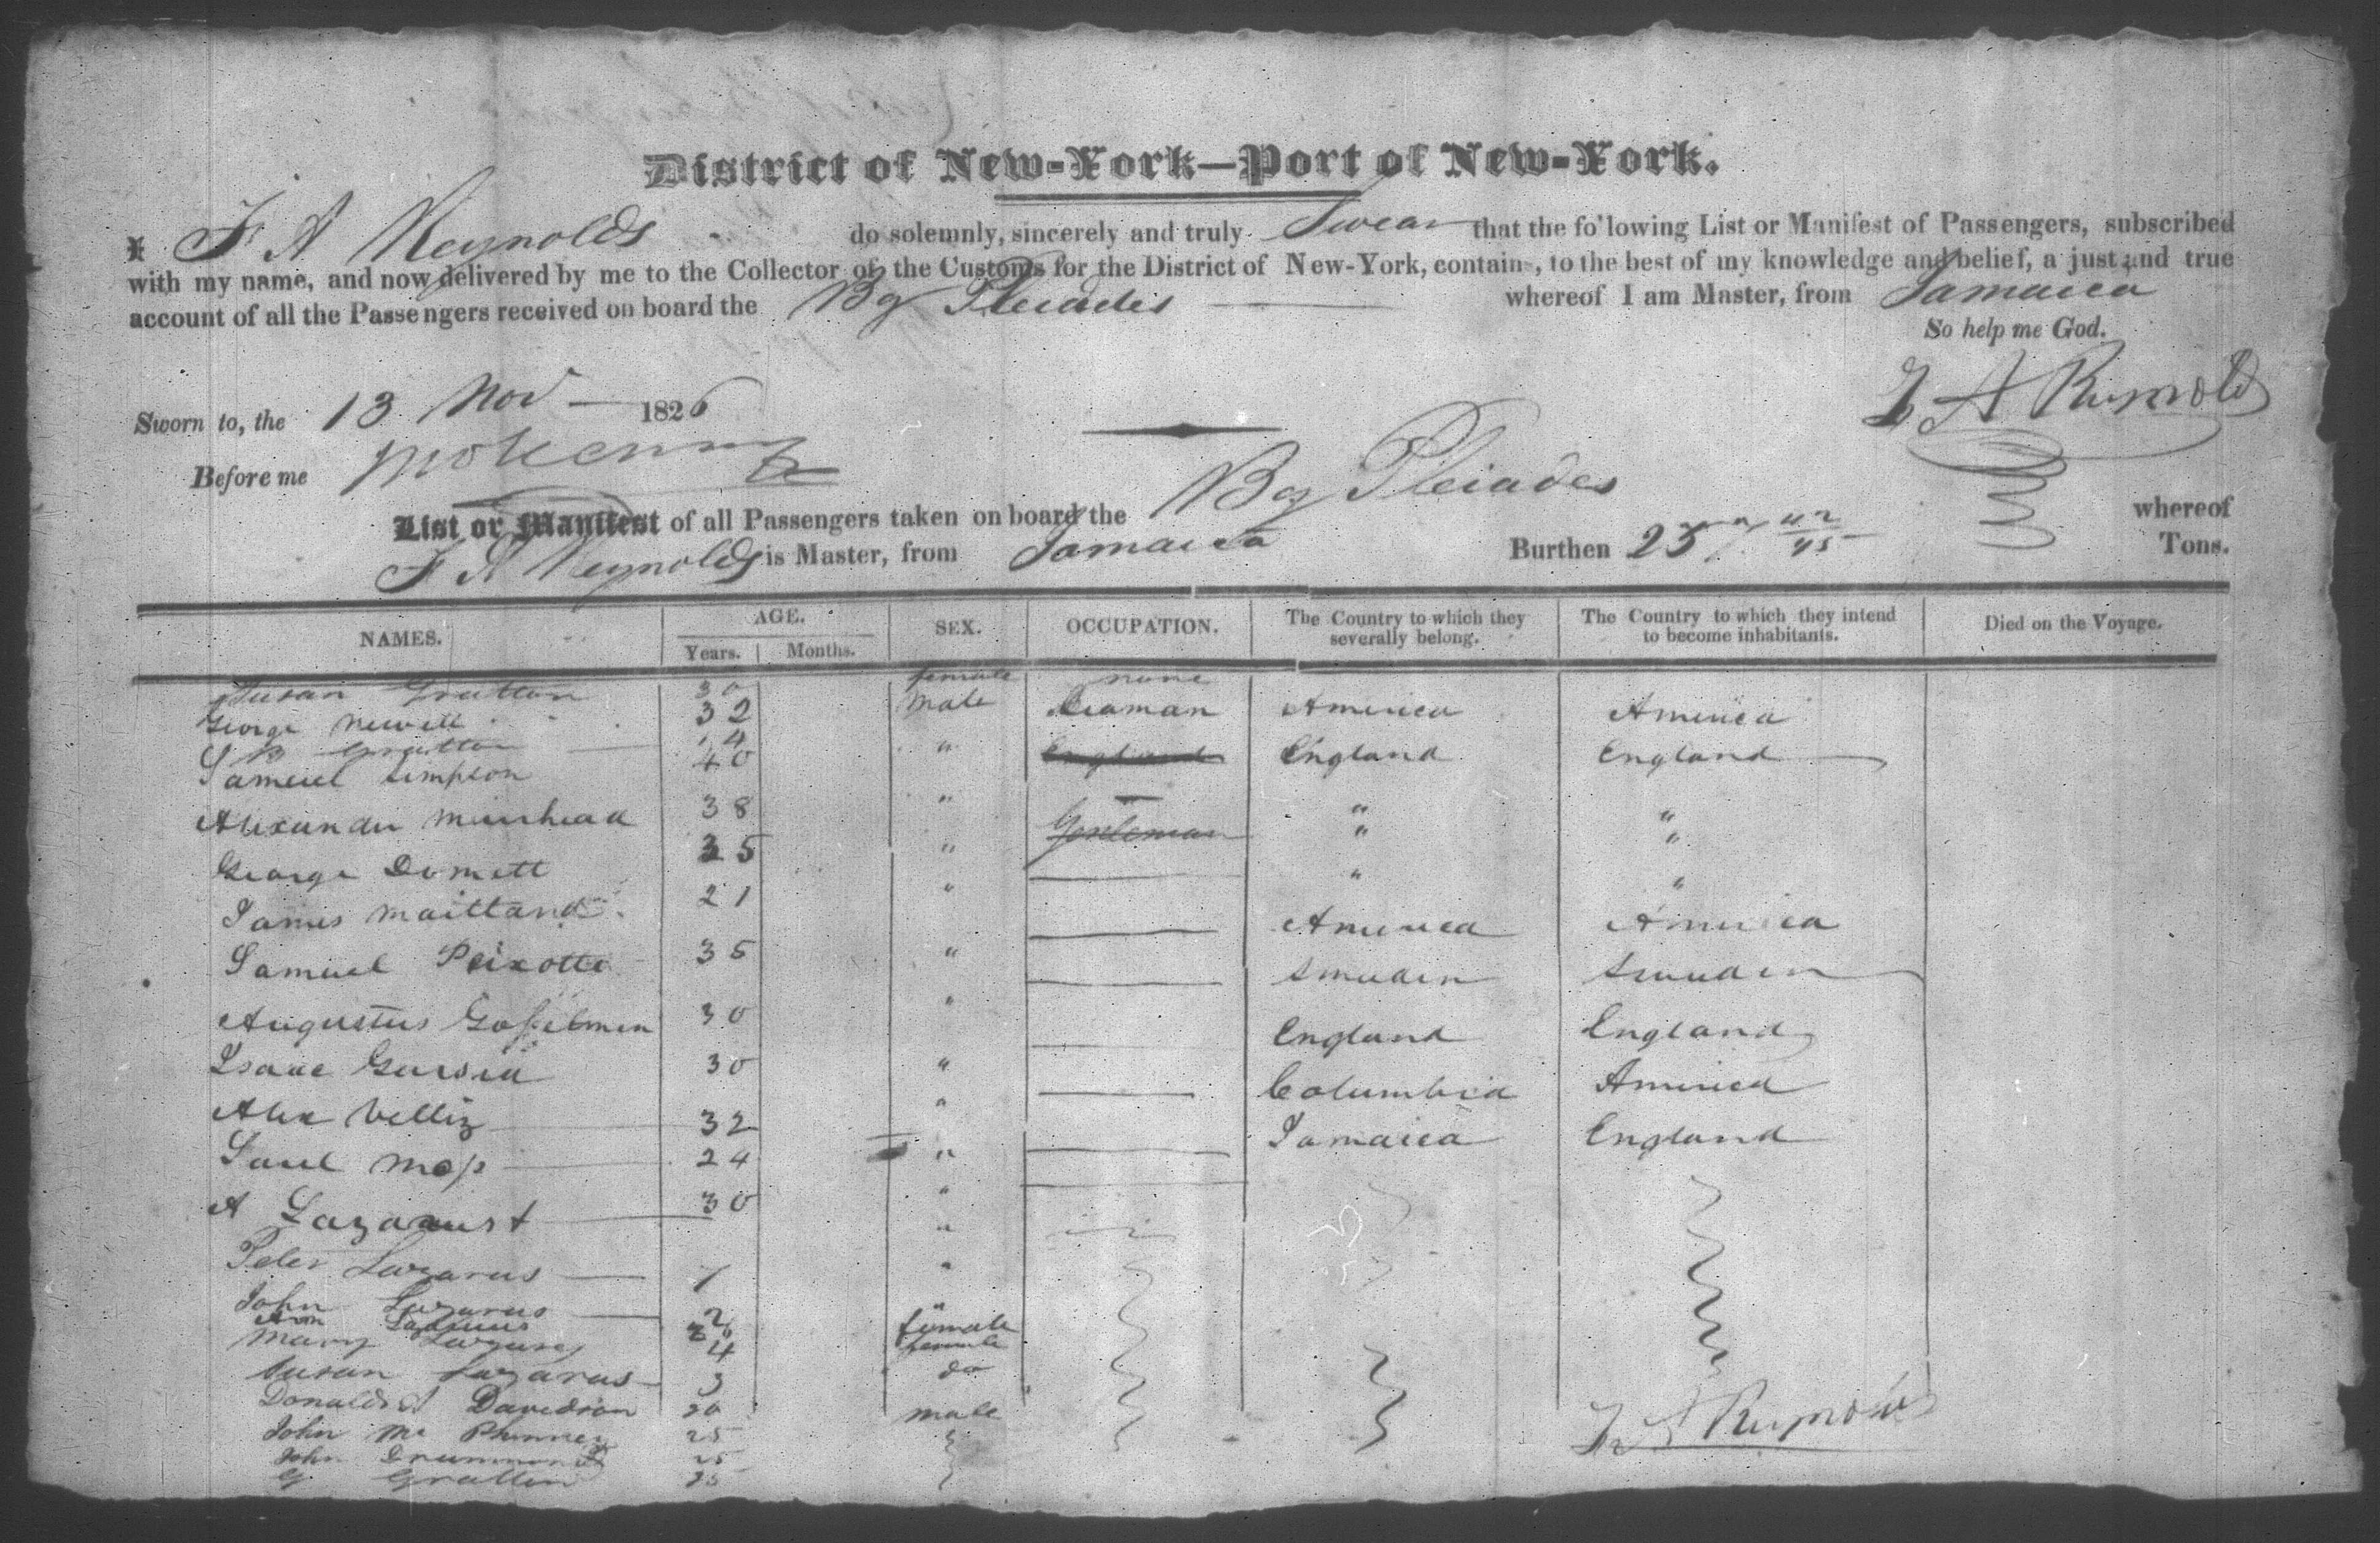 District of New-York—Port of New-York.
I F A Reynolds do solemnly, sincerely and truly Swear that the following List or Manifest of Passengers, subscribed
with my name, and now delivered by me to the Collector of the Customs for the District of New-York, contains, to the best of my knowledge and belief, a just and true
account of all the Passengers received on board the Bg Pleiades whereof I am Master, from Jamaica
So help me God.
F A Reynolds
Sworn to, the 13 Nov 1826
Before me
List or Manifest of all Passengers taken on board the Bg Pleiades whereof
F A Reynolds is Master, from Jamaica Burthen 257 Tons.
NAMES. AGE. SEX. OCCUPATION. The Country to which they severally belong. The Country to which they intend to become inhabitants. Died on the Voyage.
Years. Months.
Susan Gratton 30 female none
George Newell 32 male Seaman America America
Gratton 14
Samuel Simpson 40 " England England England
Alexander Muirhead 38 " " "
George Domett 35 " Gentleman " "
James Maitland 21 " " "
Samuel Peixotto 35 " America America
Augustus Gosselman 30 " Sweden Sweden
Isaac Garsia 30 " England England
Alex Velliz 32 " Columbia America
Saul Moss 24 " Jamaica England
A Lazarus 30 "
Peter Lazarus 7 "
John Lazarus 2 "
Ann Lazarus female
Mary Lazarus 4 female
Susan Lazarus 3 do
Donald Davidson 20 male
John Mc 25
John Drummond 25
G Gratton 35
F A Reynolds